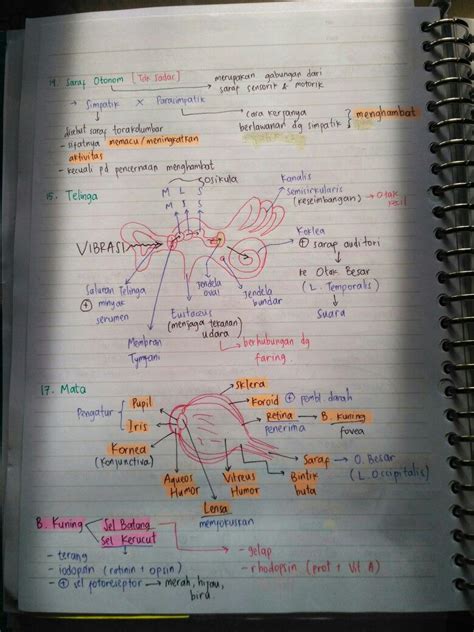 14. Saraf Otonom [Tak Sadar] → merupakan gabungan dari
saraf sensorik & motorik
→ Simpatik X Parasimpatik
cara kerjanya
berlawanan dg simpatik } menghambat
disebut saraf torakolumbar
- sifatnya memacu/meningkatkan
aktivitas
- kecuali pd pencernaan menghambat
15. Telinga
osikula
M L S
M I S
Kanalis
Semisirkularis
(keseimbangan) → Otak
kecil
VIBRASI
Koklea
+ saraf auditori
ke Otak Besar
(L. Temporalis)
Suara
Saluran Telinga
+ minyak
serumen
Jendela
oval
Jendela
bundar
Eustacius
(menjaga tekanan
udara
Membran
Tympani
berhubungan dg
faring
17. Mata
Sklera
Pupil
Koroid + pembl. darah
Pengatur
Iris
Retina → B. Kuning
penerima
fovea
Kornea
(konjunctiva)
Saraf → O. Besar
(L. Occipitalis)
Aqueos
Humor
Vitreus
Humor
Bintik
buta
Lensa
memfokuskan
B. Kuning
Sel Batang
Sel Kerucut
- terang
- gelap
- iodopsin (retinin + opsin)
- rhodopsin (prot + Vit A)
- + sel fotoreseptor → merah, hijau,
biru